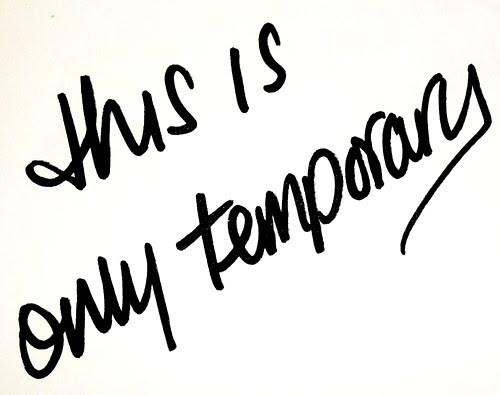 this is
only temporary